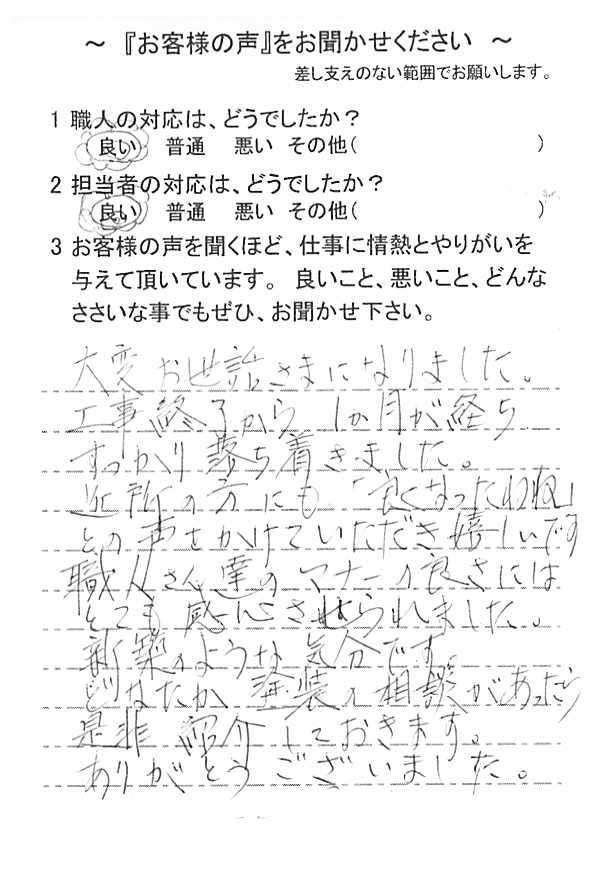 ～ 『お客様の声』をお聞かせください ～
差し支えのない範囲でお願いします。
1 職人の対応は、どうでしたか？
良い 普通 悪い その他( )
2 担当者の対応は、どうでしたか？
良い 普通 悪い その他( )
3 お客様の声を聞くほど、仕事に情熱とやりがいを
与えて頂いています。 良いこと、悪いこと、どんな
ささいな事でもぜひ、お聞かせ下さい。
大変お世話さまになりました。
工事終了から 1か月が経ち
すっかり落ち着きました。
近所の方にも「良くなったわね」
との声をかけていただき嬉しいです
職人さん達のマナーの良さには
とても感心させられました。
新築のような気分です。
どなたか 塗装の相談があったら
是非 紹介しておきます。
ありがとうございました。